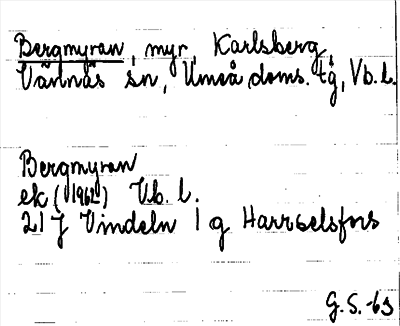 Bergmyran, myr, Karlsberg,
Vännäs sn, Umeå doms. tg, Vb. l.
Bergmyran
ek (1961) Vb. l.
21 J Vindeln 1 g Harrselsfors
G. S. -63